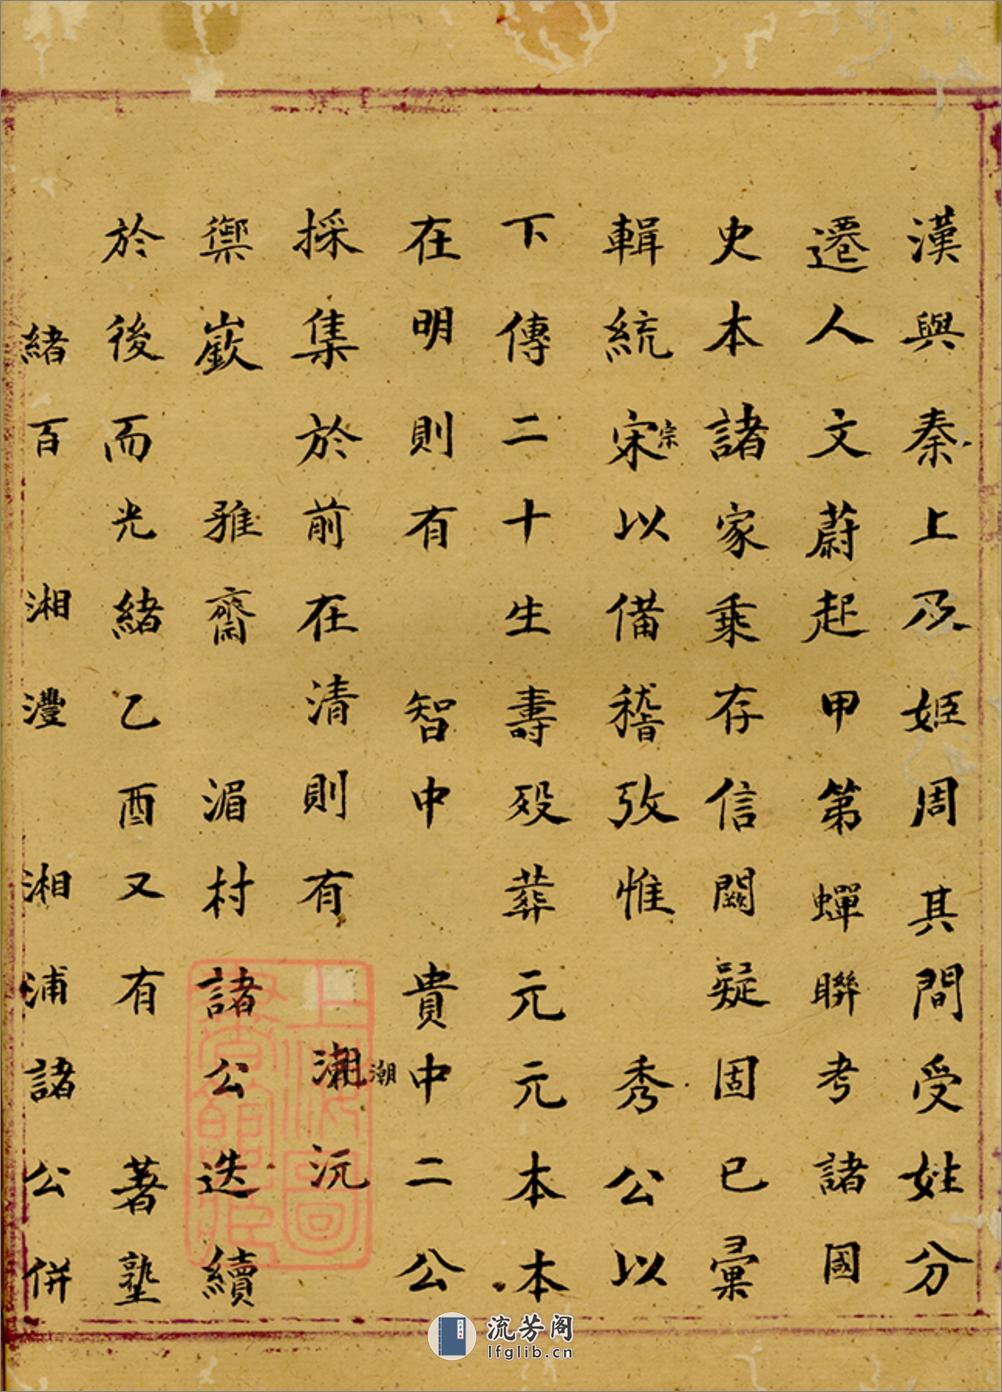 漢與秦上及姬周其間受姓分
遷人文蔚起甲第蟬聯考諸國
史本諸家乘存信闕疑固已彙
輯統宋宗以備稽攷惟 秀公以
下傳二十生壽歿葬元元本本
在明則有 智中 貴中二公
採集於前在清則有 潮沅
潮
禦嶔 雅齋 湄村諸公迭續
於後而光緒乙酉又有 著塾
緒百 湘灃 湘浦諸公併
上海圖書館藏
流芳阁
lfglib.cn